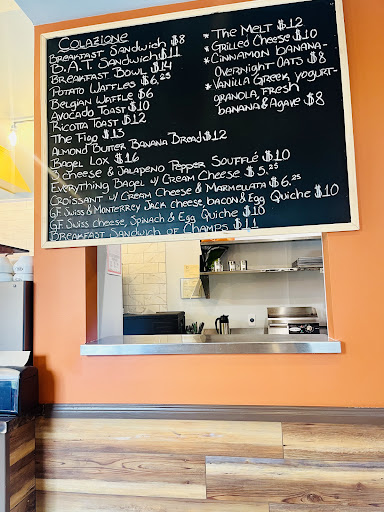 Colazione
Breakfast Sandwich $8
B.A.T. Sandwich $11
Breakfast Bowl $14
Potato Waffles $6.25
Belgian Waffle $6
Avocado Toast $10
Ricotta Toast $12
The Figo $13
Almond Butter Banana Bread $12
Bagel Lox $16
3 Cheese & Jalapeno Pepper Soufflé $10
Everything Bagel w/ Cream Cheese $5.25
Croissant w/ Cream Cheese & Marmellata $6.25
GF Swiss & Monterrey Jack cheese, bacon & Egg Quiche $10
GF Swiss cheese, Spinach & Egg Quiche $10
Breakfast Sandwich of Champs $11
* The Melt $12
* Grilled Cheese $10
* Cinnamon banana-
Overnight Oats $8
* Vanilla Greek yogurt-
granola, Fresh
banana & Agave $8